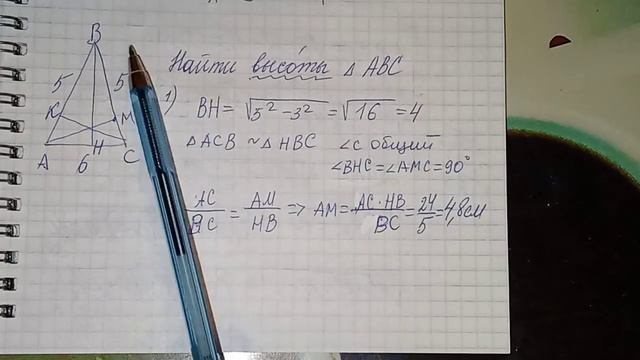 B
5
5
K
M
A
H
C
6
Найти высо́ты △ ABC
1)
BH = √5²-3² = √16 = 4
△ ACB ~ △ HBC ∠C общий
∠BHC = ∠AMC = 90°
AC/BC = AM/HB => AM = AC·HB/BC = 24/5 = 4,8см